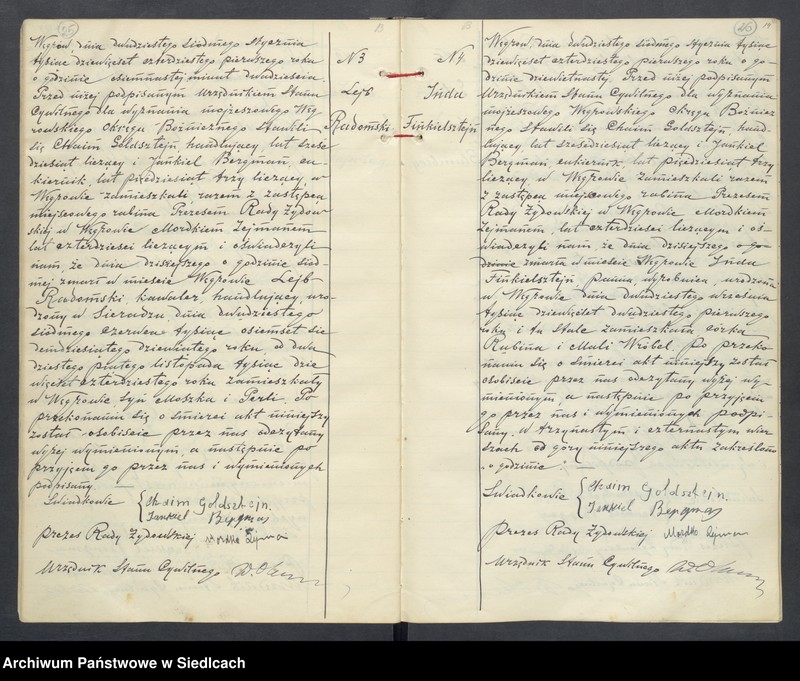 25
Węgrow, dnia dwudziestego siodmego stycznia
tysiąc dziewięcset czterdziestego pierwszego roku
o godzinie osiemnastej minut dwudziescia.
Przed niżej podpisanym Urzędnikiem Stanu
Cywilnego dla wyznania mojżeszowego Węg
rowskiego Okręgu Bożniczego stawili
się Chaim Goldsztejn, handlujący, lat szesc
dziesiat liczący i Jankiel Bergman, cu-
kiernik, lat pięcdziesiat trzy liczący w
Węgrowie zamieszkali, razem z zastępcą
miejscowego rabina Prezesem Rady Żydow
skiej w Węgrowie Mordkiem Zejmanem
lat czterdziesci liczącym i oswiadczyli
nam, że dnia dzisiejszego o godzinie siód-
mej zmarł w miescie Węgrowie Lejb
Radomski, kawaler, handlujący, uro-
dzony w Sieradzu, dnia dwudziestego
siodmego czerwca tysiąc osiemset sie
demdziesiatego dziewiatego roku, od dwu
dziestego piatego listopada tysiąc dzie
więcset czterdziestego roku zamieszkały
w Węgrowie syn Moszka i Perli. Po
przekonaniu się o smierci akt niniejszy
został osobiscie przez nas odczytany
wyżej wymienionym, a następnie po
przyjęciu go przez nas i wymienionych
podpisany. —
Swiadkowie Chaim Goldsztejn.
Jankiel Bergman
Prezes Rady Żydowskiej Mordko Zejman
Urzędnik Stanu Cywilnego
N 3
Lejb
Radomski
N 4.
Inda
Finkielsztejn
26
Węgrow, dnia dwudziestego siodmego stycznia tysiąc
dziewięcset czterdziestego pierwszego roku o go-
dzinie dziewietnastej. Przed niżej podpisanym
Urzędnikiem Stanu Cywilnego dla wyznania
mojżeszowego Węgrowskiego Okręgu Bożnicz
nego stawili się Chaim Goldsztejn, hand-
lujący, lat szescdziesiat liczący i Jankiel
Bergman cukiernik, lat pięcdziesiat trzy
liczący w Węgrowie zamieszkali razem
z zastępcą miejscowego rabina Prezesem
Rady Żydowskiej w Węgrowie Mordkiem
Zejmanem, lat czterdziesci liczącym i os-
wiadczyli nam, że dnia dzisiejszego o go-
dzinie zmarła w miescie Węgrowie Inda
Finkielsztejn panna, wyrobnica, urodzona
w Węgrowie dnia dwudziestego wrzesnia
tysiąc dziewięcset dwudziestego pierwszego
roku, i tu stale zamieszkała córka
Rubina i Mali Wróbel. Po przeko-
naniu się o smierci akt niniejszy został
osobiscie przez nas odczytany wyżej wy-
mienionym, a następnie po przyjęciu
go przez nas i wymienionych podpi-
sany. W trzynastym i czternastym wier
szach od gory niniejszego aktu zakreslono
„o godzinie". —
Swiadkowie Chaim Goldsztejn.
Jankiel Bergman
Prezes Rady Żydowskiej Mordko Zejman
Urzędnik Stanu Cywilnego
Archiwum Państwowe w Siedlcach